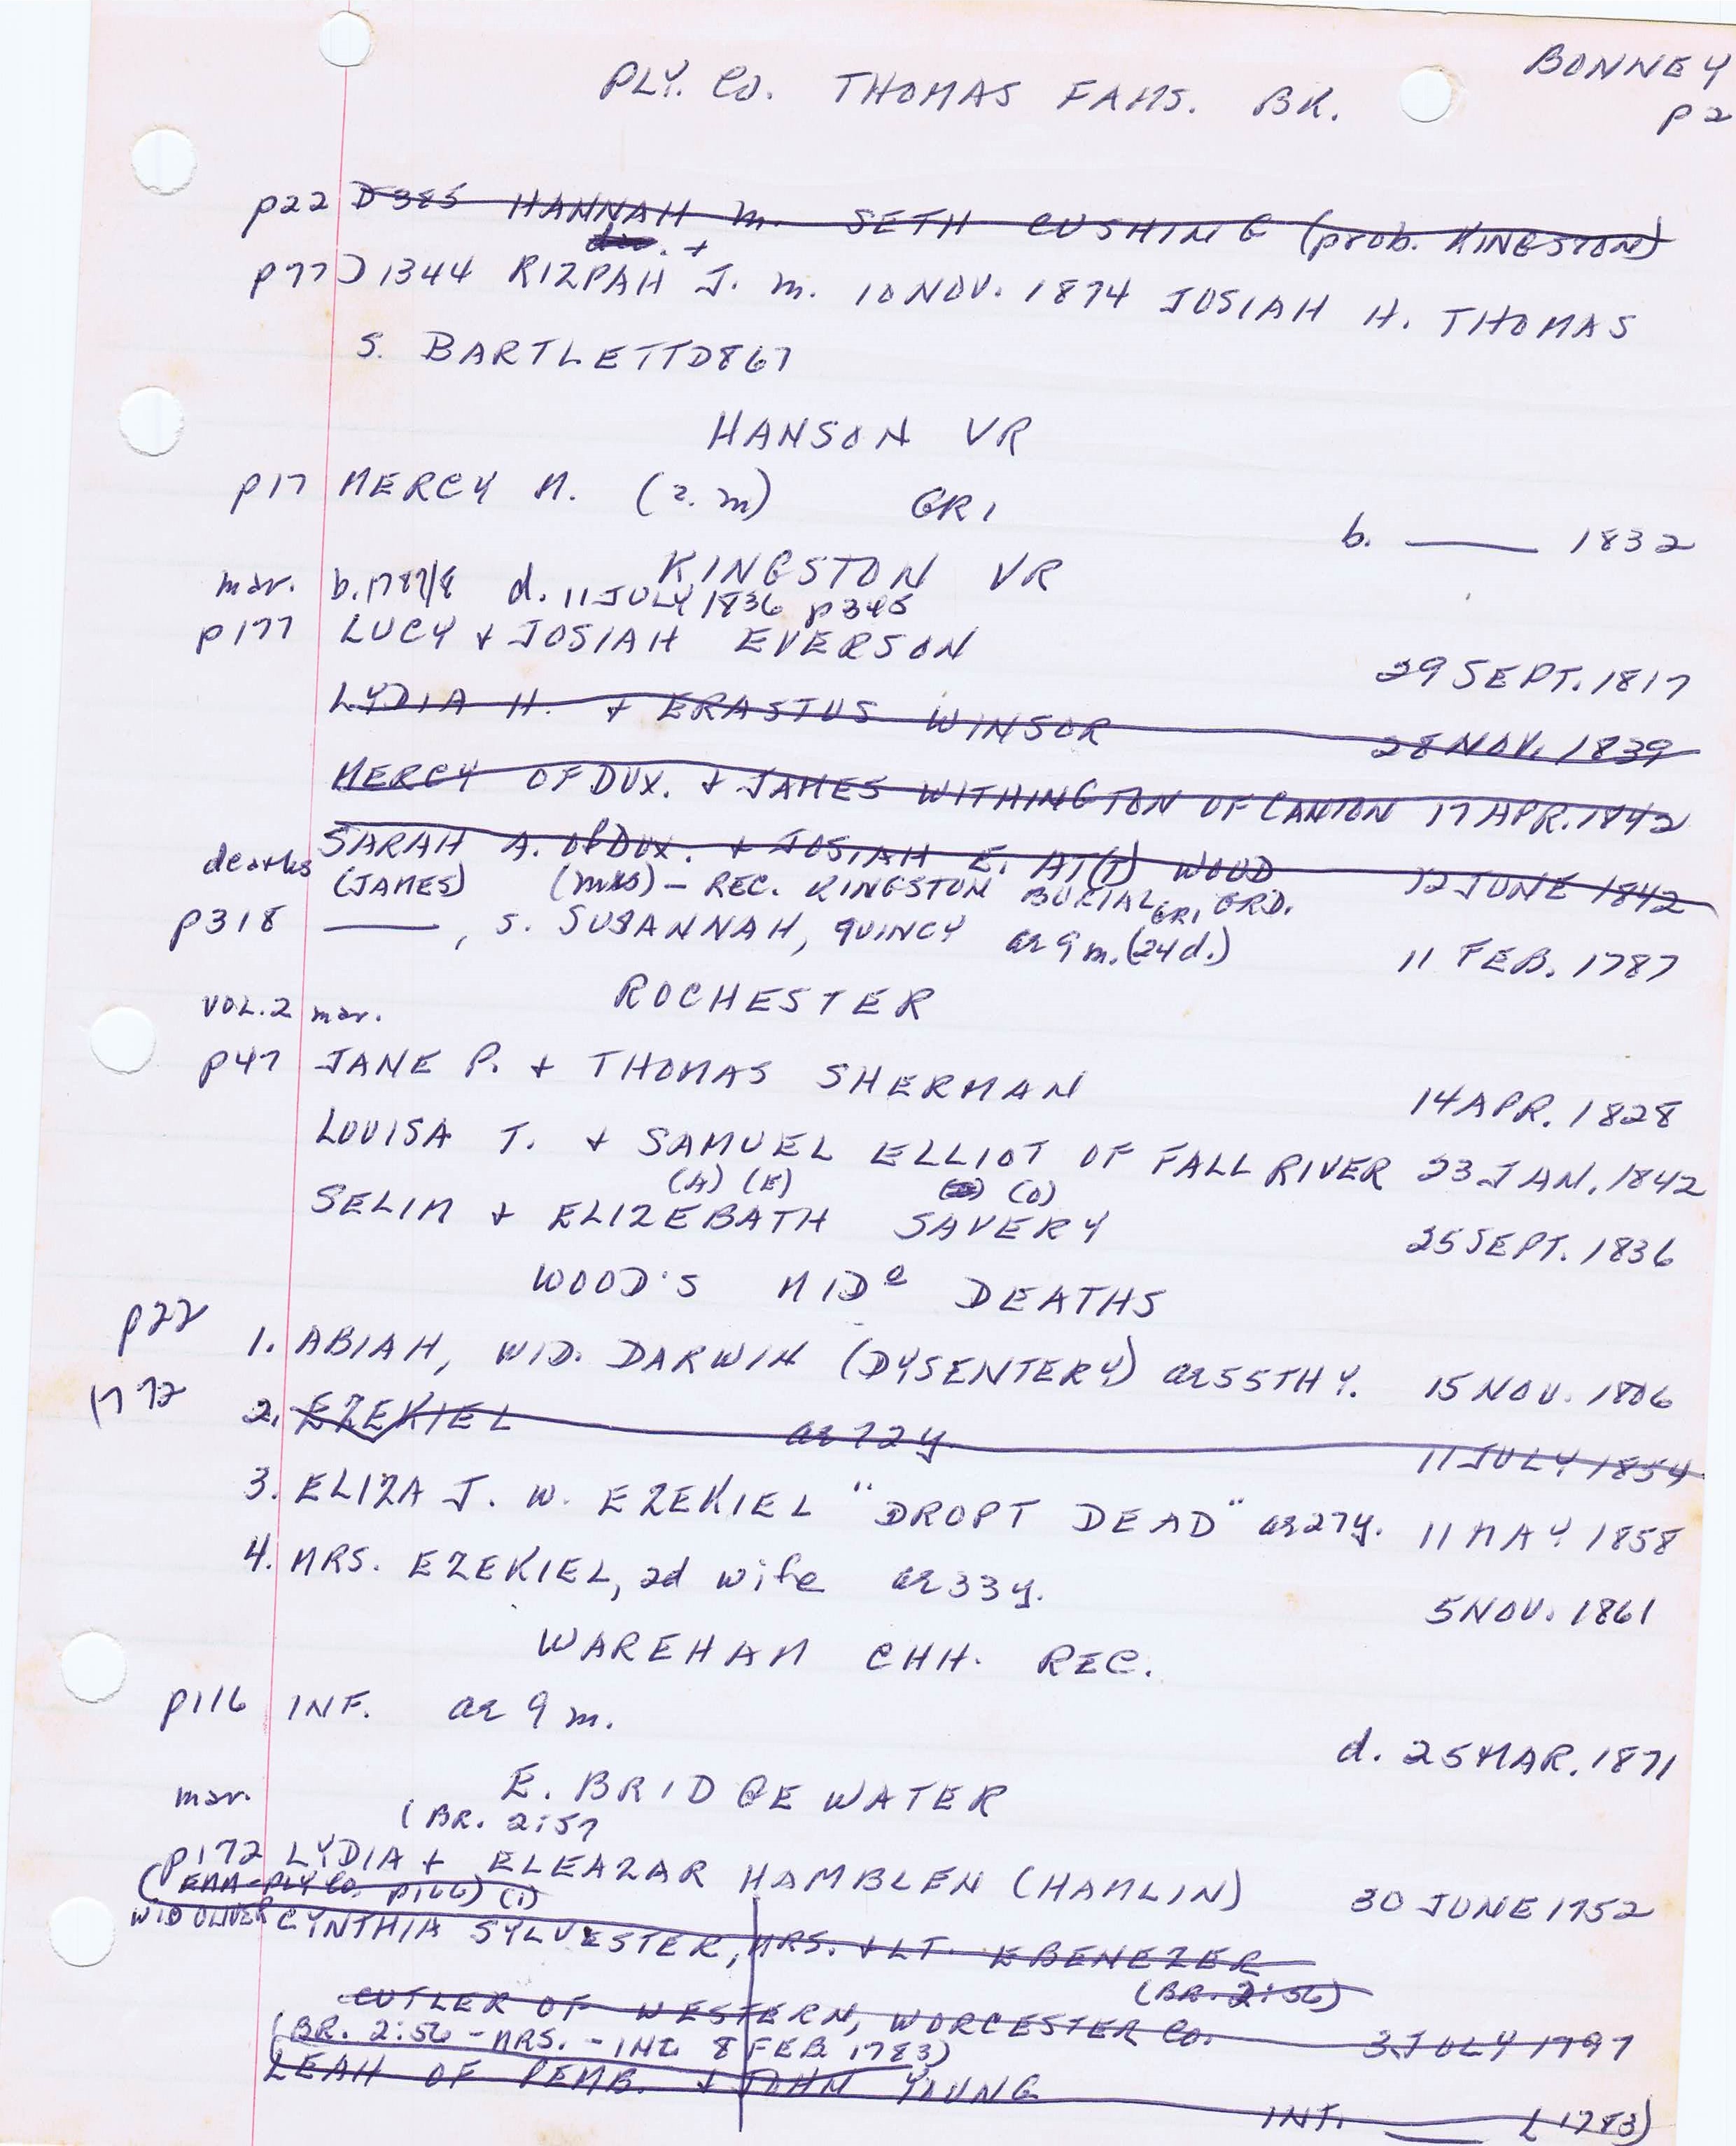 BONNEY
PLY. CO. THOMAS FAMS. BK.
p2
p22 D385 HANNAH m. SETH CUSHING (prob. KINGSTON)
div. +
p77 D1344 RIZPAH J. m. 10 NOV. 1874 JOSIAH H. THOMAS
S. BARTLETT D867
HANSON VR
p17 MERCY M. (2. m) GR1 b. —— 1832
KINGSTON VR
mar. b. 1787/8 d. 11 JULY 1836 p345
p177 LUCY + JOSIAH EVERSON 29 SEPT. 1817
LYDIA H. + ERASTUS WINSOR 28 NOV. 1839
MERCY OF DUX. + JAMES WITHINGTON OF CANTON 17 APR. 1842
SARAH A. OF DUX. + JOSIAH E. AT(T)WOOD 12 JUNE 1842
deaths (JAMES) (mrs) - REC. KINGSTON BURIAL GRD.
GR1
p318 ——, S. SUSANNAH, QUINCY ae 9 m. (24 d.) 11 FEB. 1787
ROCHESTER
VOL. 2 mar.
p47 JANE P. + THOMAS SHERMAN 14 APR. 1828
LOUISA T. + SAMUEL ELLIOT OF FALL RIVER 23 JAN. 1842
(A) (E) (O)
SELIM + ELIZEBATH SAVERY 25 SEPT. 1836
WOOD'S MIDᵉ DEATHS
p22
1. ABIAH, WID. DARWIN (DYSENTERY) ae 55TH Y. 15 NOV. 1806
1772
2. EZEKIEL ae 72 y. 11 JULY 1854
3. ELIZA J. W. EZEKIEL "DROPT DEAD" ae 27 y. 11 MAY 1858
4. MRS. EZEKIEL, 2d wife ae 33 y. 5 NOV. 1861
WAREHAM CHH. REC.
p116 INF. ae 9 m. d. 25 MAR. 1871
E. BRIDGEWATER
mar.
(BR. 2:57
p172 LYDIA + ELEAZAR HAMBLEN (HAMLIN) 30 JUNE 1752
(EMM-PLY CO. p166) (i)
WID OLIVER CYNTHIA SYLVESTER, MRS. + LT. EBENEZER
(BR. 2:56)
CUTLER OF WESTERN, WORCESTER CO. 3 JULY 1797
(BR. 2:56 - MRS. - INT. 8 FEB 1783)
LEAH OF PEMB. + JOHN YOUNG INT. —— (1783)